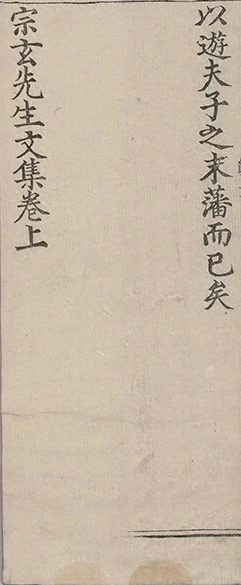 以遊夫子之末藩而已矣
宗玄先生文集卷上